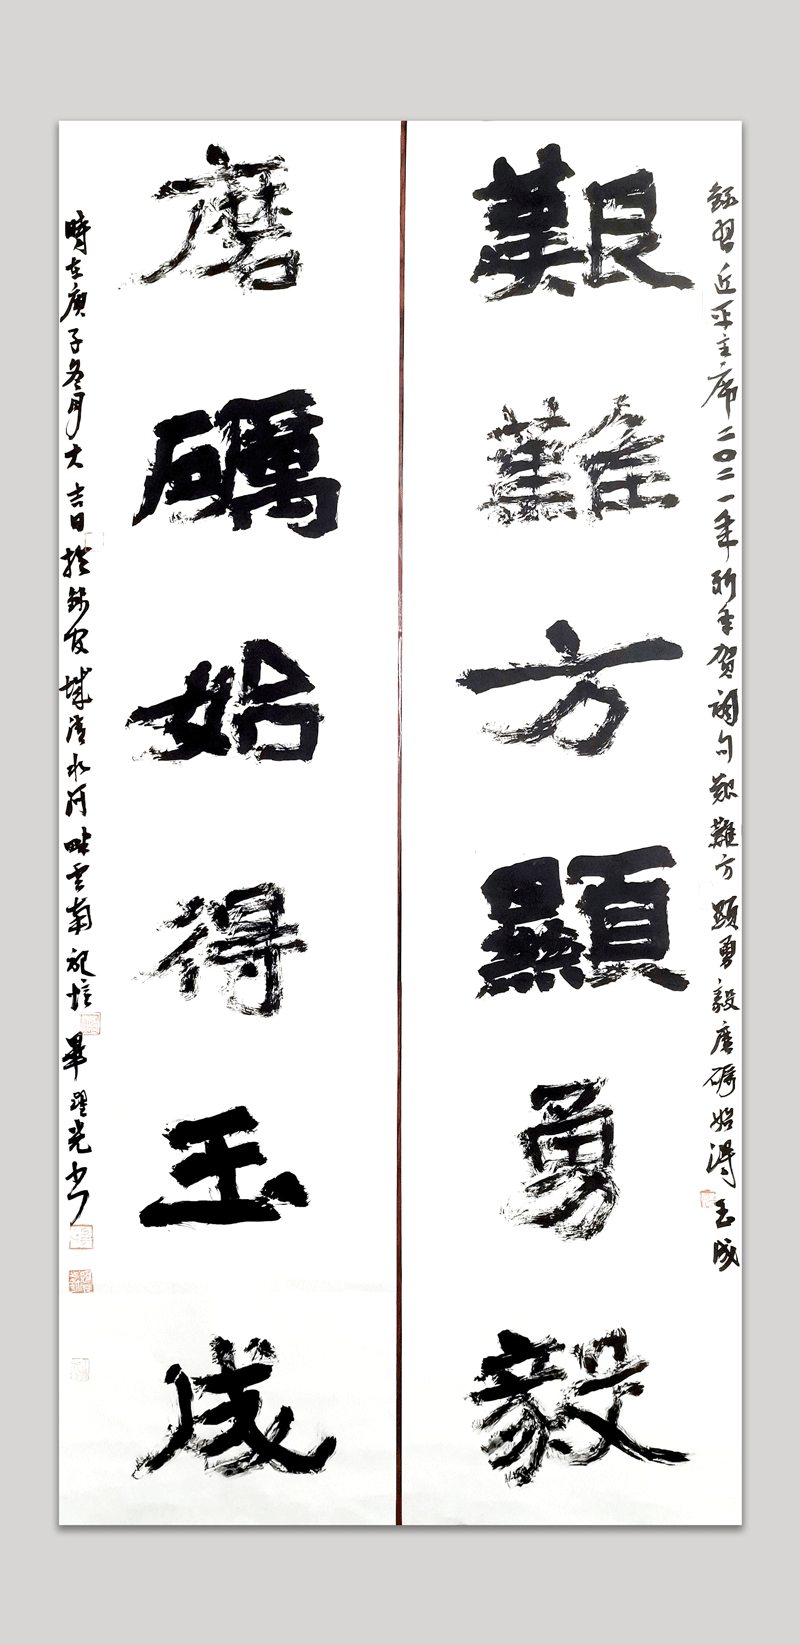 錄習近平主席二〇二一年新年賀詞句艱難方顯勇毅磨礪始得玉成
艱難方顯勇毅
磨礪始得玉成
時在庚子冬月大吉日於錦官城清水河畔雲南記焙畢躍光書